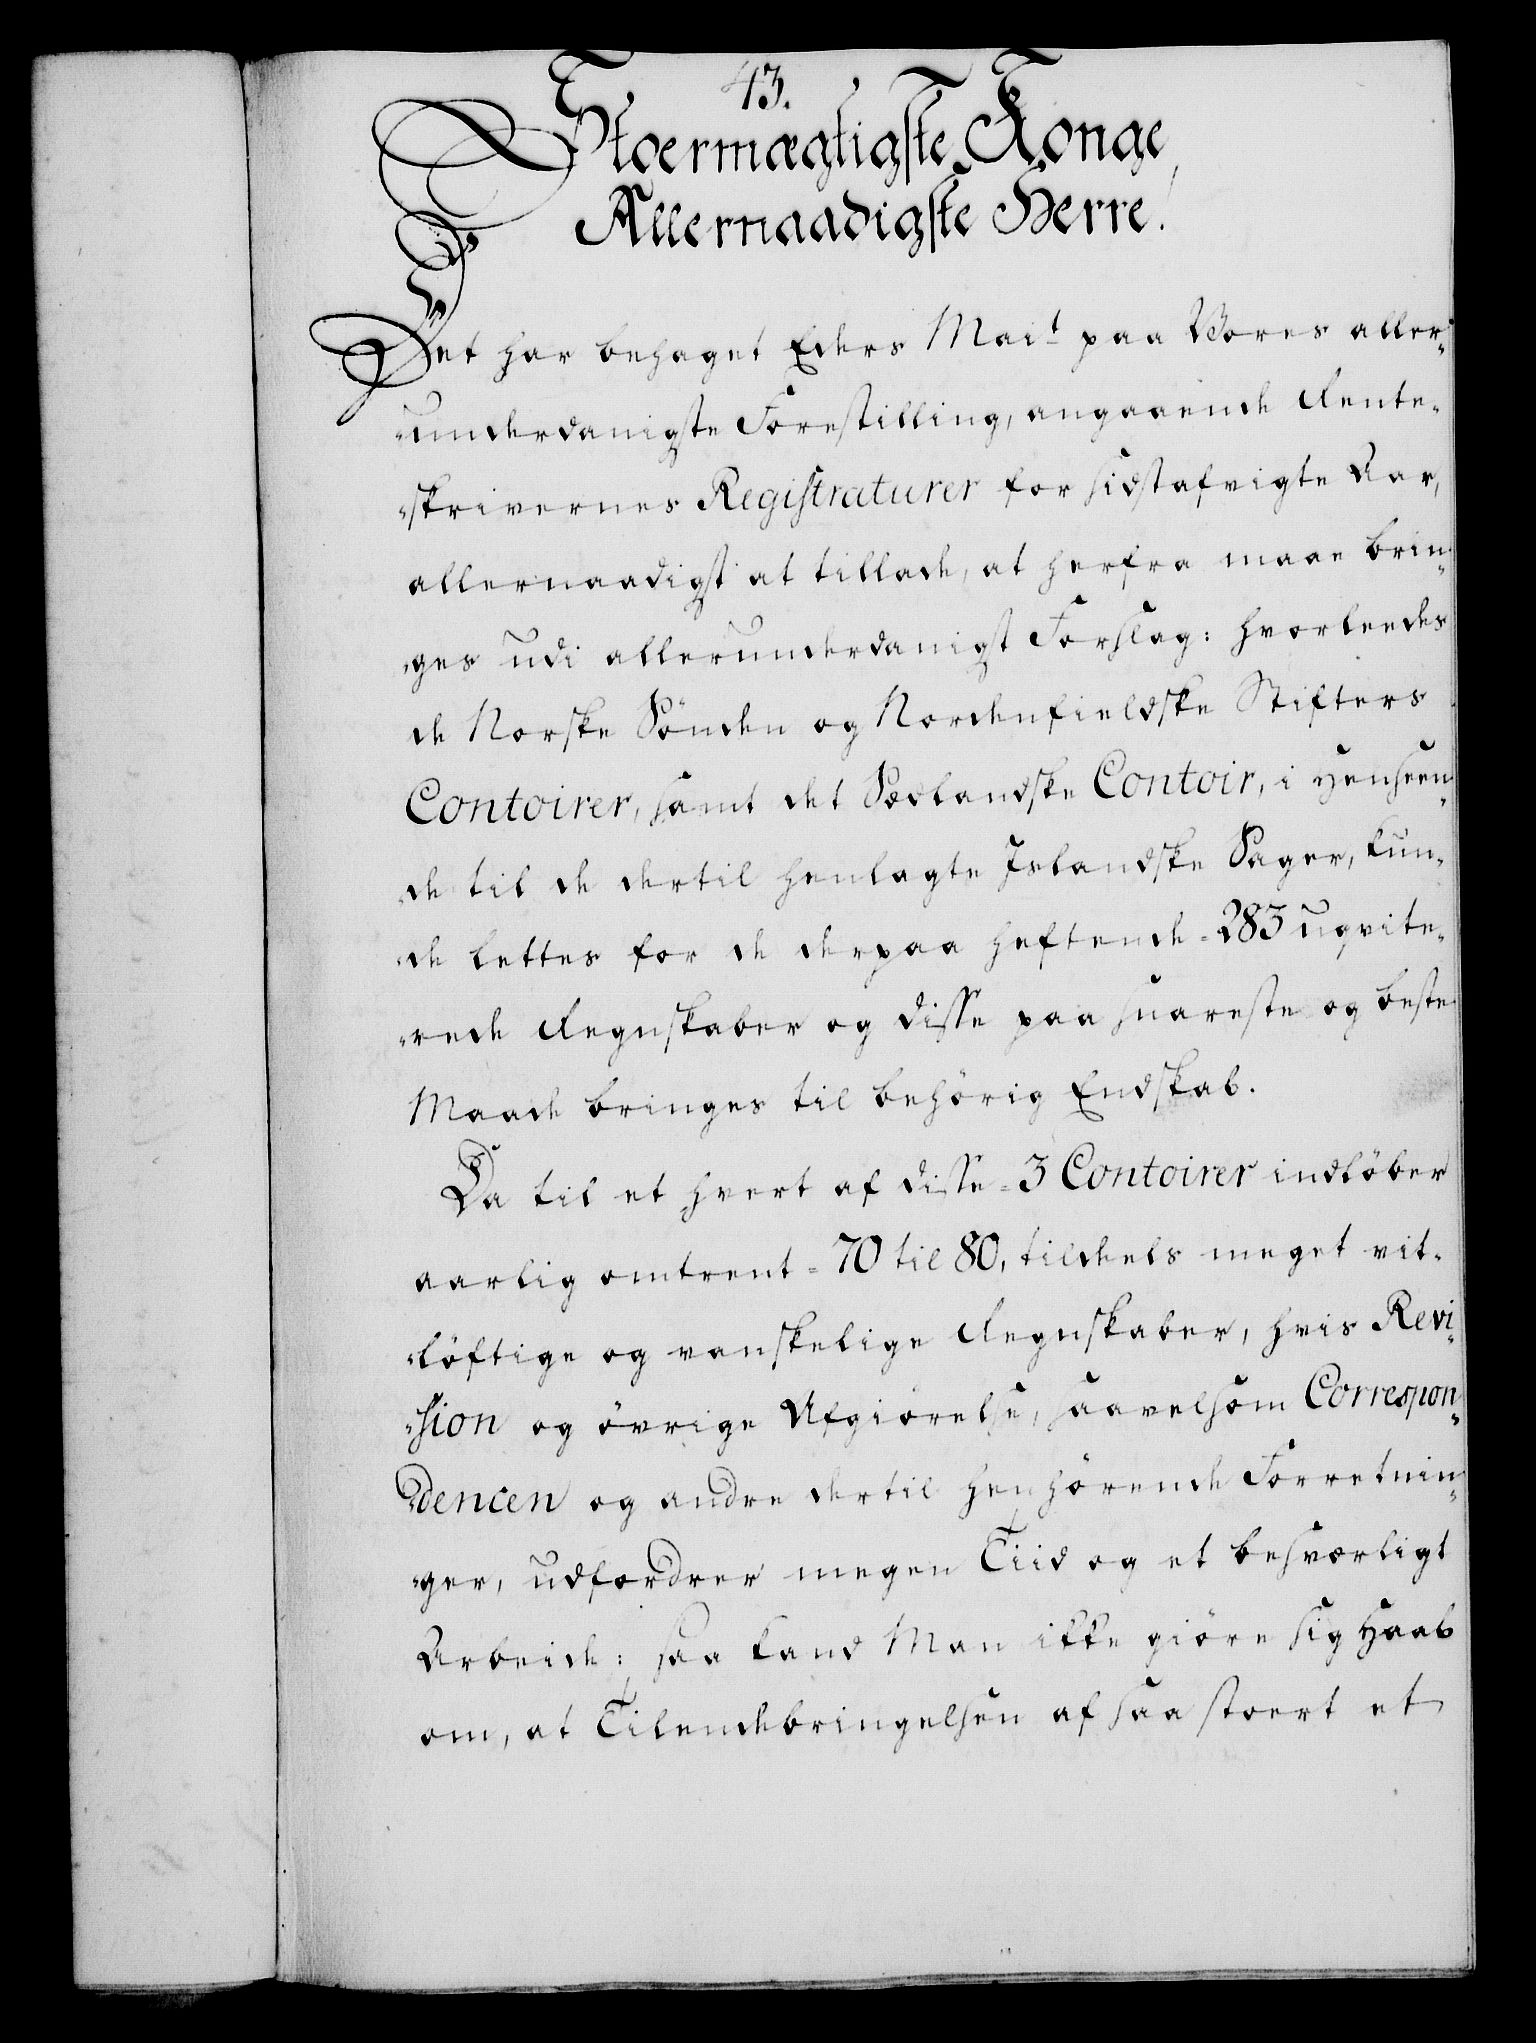 43.
Stoermægtigste Konge,
Allernaadigste Herre!
Det har behaget Eders Mait paa Vores aller„
„underdanigste Forestilling, angaaende Rente„
„skrivernes Registraturer for sidstafvigte Aar,
allernaadigst at tillade, at herfra maae brin„
„ges udi allerunderdanigst Forslag: hvorleedes
de Norske Sönden og Nordenfieldske Stifters
Contoirer, samt det Sædlandske Contoir, i Henseen„
„de til de dertil henlagte Islandske Sager, kun„
„de lettes for de derpaa heftende = 283 uqvite„
„rede Regnskaber og disse paa snareste og beste
Maade bringes til behörig Endskab.
Da til et hvert af disse = 3 Contoirer indlöber
aarlig omtrent = 70 til 80, tildeels meget vit„
„löftige og vanskelige Regnskaber, hvis Revi„
„sion og övrige Afgiörelse, saavelsom Correspon„
„dencen og andre dertil henhörende Forretnin„
„ger, udfordrer megen Tiid og et besværligt
Arbeide: saa kand Man ikke giöre sig Haab
om, at Tilendebringelsen af saa stoert et